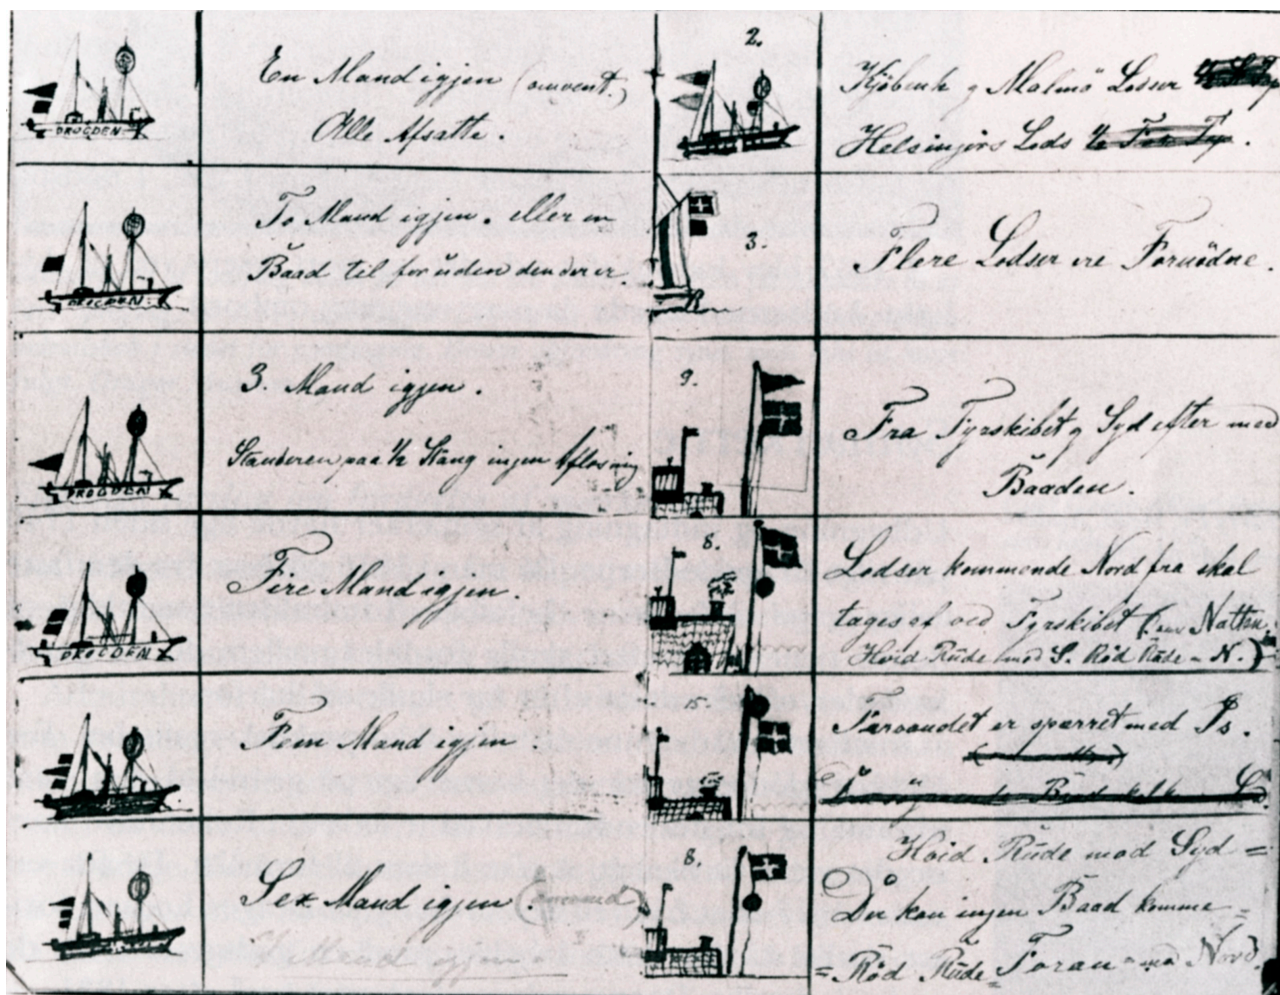 DROGDEN
En Mand igjen (omvent.)
Alle Afsatte.
DROGDEN
To Mand igjen. eller en
Baad til foruden den der er.
DROGDEN
3. Mand igjen.
Standeren paa ½ Stang ingen Afløsning
DROGDEN
Fire Mand igjen.
Fem Mand igjen
Sex Mand igjen. (omvend)
Mand igjen
2.
Kjøbenh. og Malmö Lodser
Helsingörs Lods
3.
R
Flere Lodser ere Fornödne.
9.
Fra Fyrskibet og Syd efter med
Baaden.
8.
Lodser kommende Nord fra skal
tages af ved Fyrskibet (om Natten
Hvid Rude mod S. Rød Rude - N.)
15.
Farvandet er spærret med Is.
8.
Hvid Rude mod Syd =
Der kan ingen Baad komme =
= Rød Rude = Foran = mod Nord.